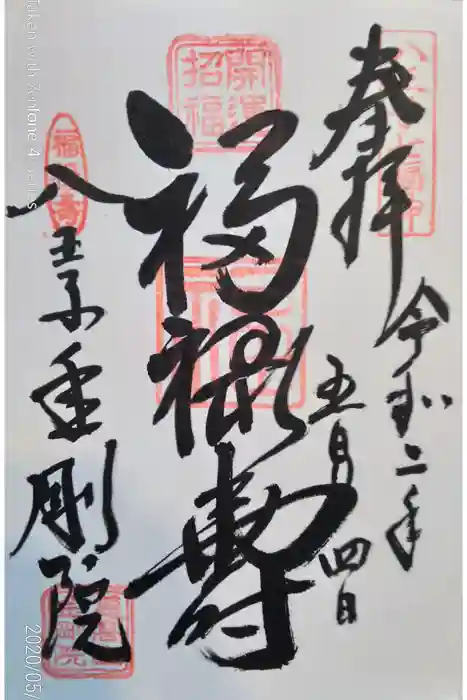 八王子七福神
奉拝
令和二年
五月四日
開運
招福
福禄壽
福禄寿
八王子金剛院
Taken with Zenfone 4 series
2020/05/